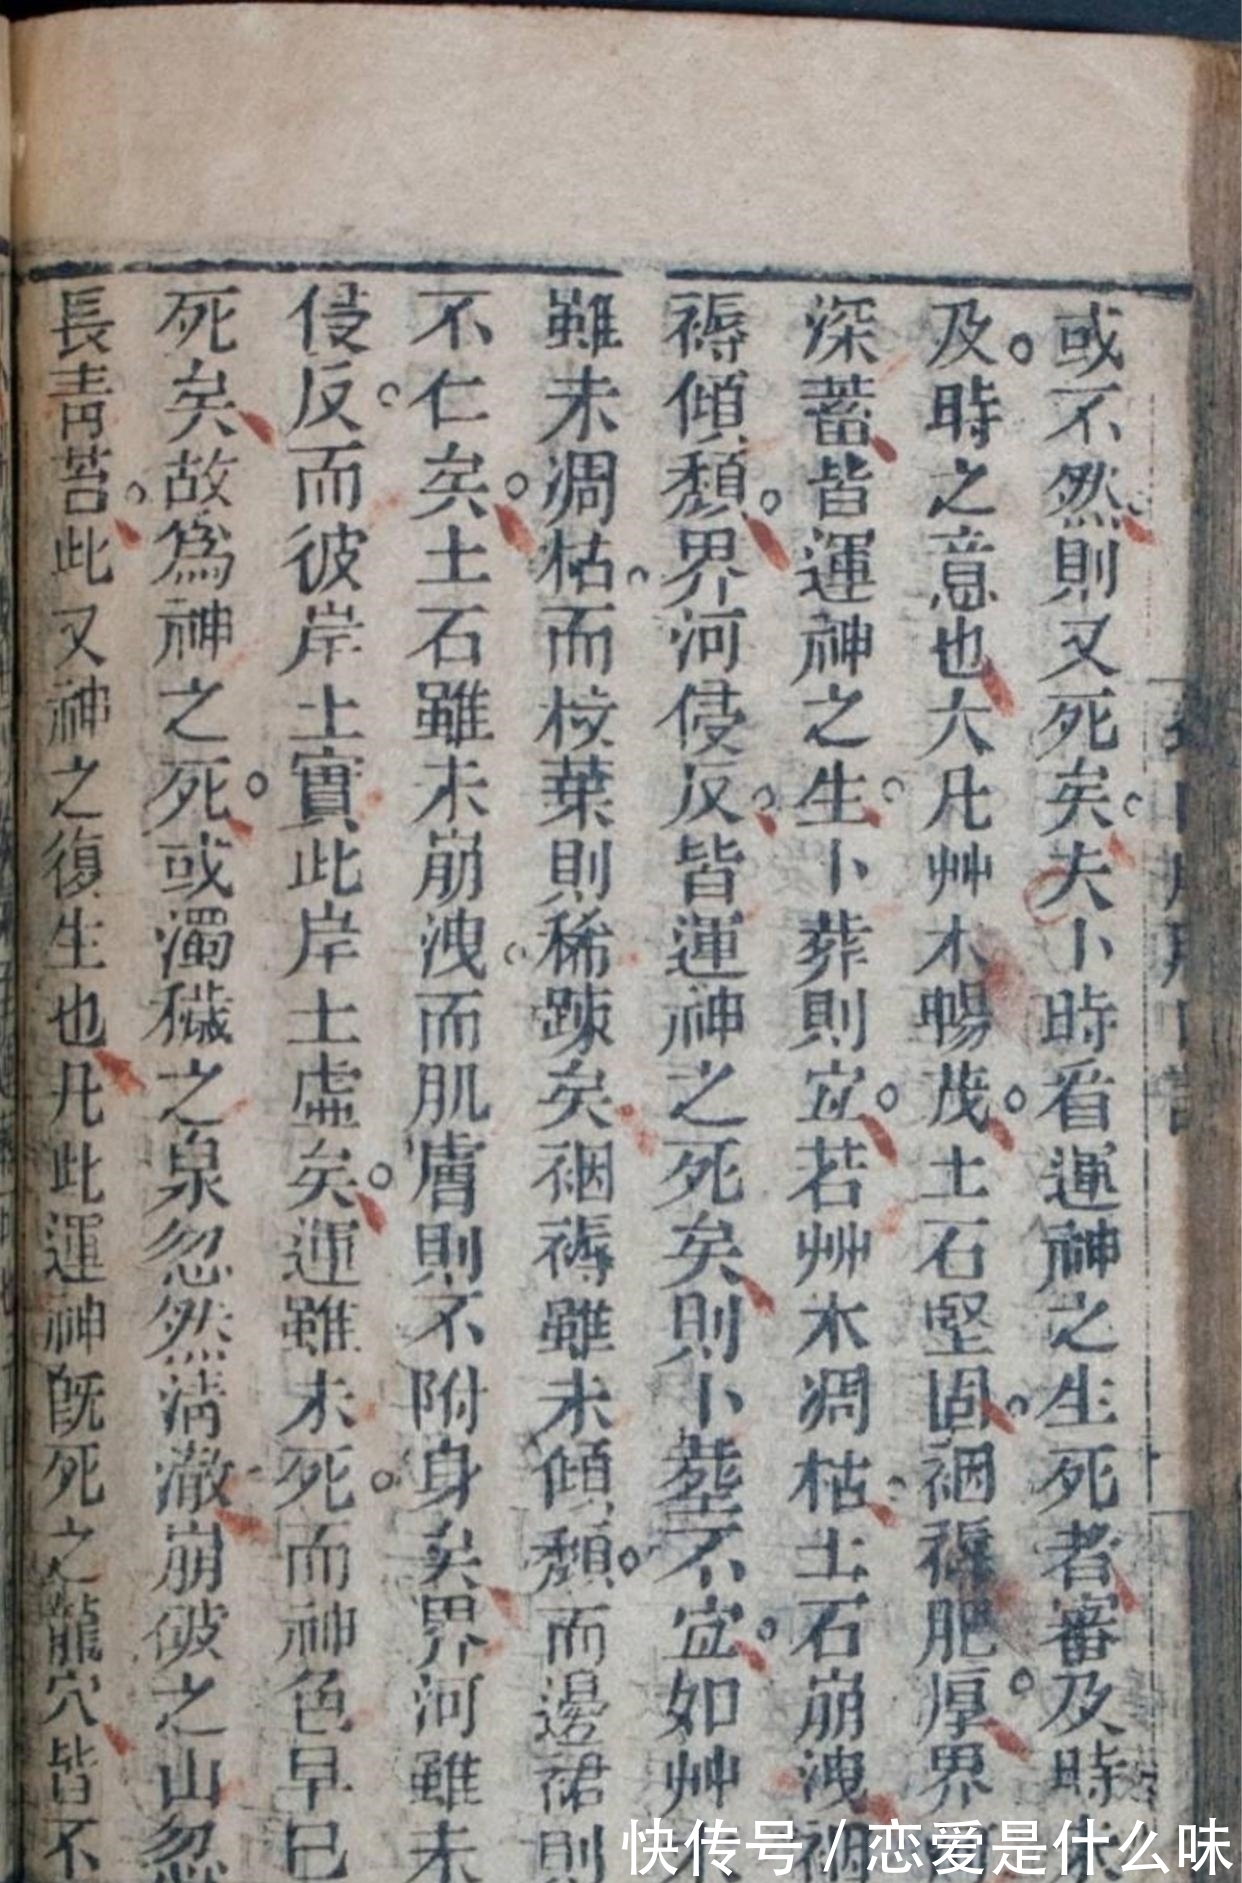 或不然則又死矣夫卜時看運神之生死者審及時
及時之意也大凡艸木暢茂土石堅固裀褥肥厚界
深蓄皆運神之生卜葬則宜若艸木凋枯土石崩洩裀
褥傾頽界河侵反皆運神之死矣則卜塟不宜如艸
雖未凋枯而枝葉則稀踈矣裀褥雖未傾頽而邊裙則
不仁矣土石雖未崩洩而肌膚則不附身矣界河雖未
侵反而彼岸土實此岸土虛矣運雖未死而神色早已
死矣故為神之死或濁穢之泉忽然清澈崩破之山忽
長青苔此又神之復生也凡此運神旣死之龍穴皆不
快传号/恋爱是什么味